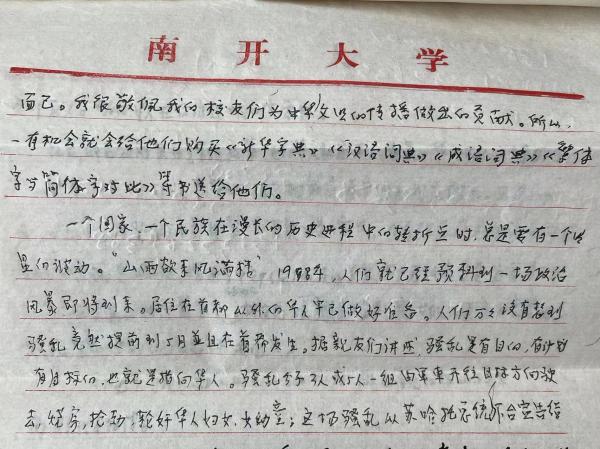 南开大学
而已。我很敬佩我的校友们为中华文化的传播做出的贡献。所以,
一有机会就会给他们购买《新华字典》《汉语词典》《成语词典》《繁体
字与简体字对比》等书送给他们。
一个国家、一个民族在漫长的历史进程中的转折点时,总是要有一个
的波动。“山雨欲来风满楼”1998年,人们就已经预料到一场政治
风暴即将到来。居住在首都以外的华人早已做好准备。人们万万没有想到
骚乱竟然提前到5月并且在首都发生。据亲友们讲述,骚乱是有目的,有计划
有目标的,也就是指向华人。骚乱分子3人或5人一组由军车开往目标方向驶
去,烧房,抢劫,轮奸华人妇女,女幼童;这场骚乱从苏哈托总统下台宣告结